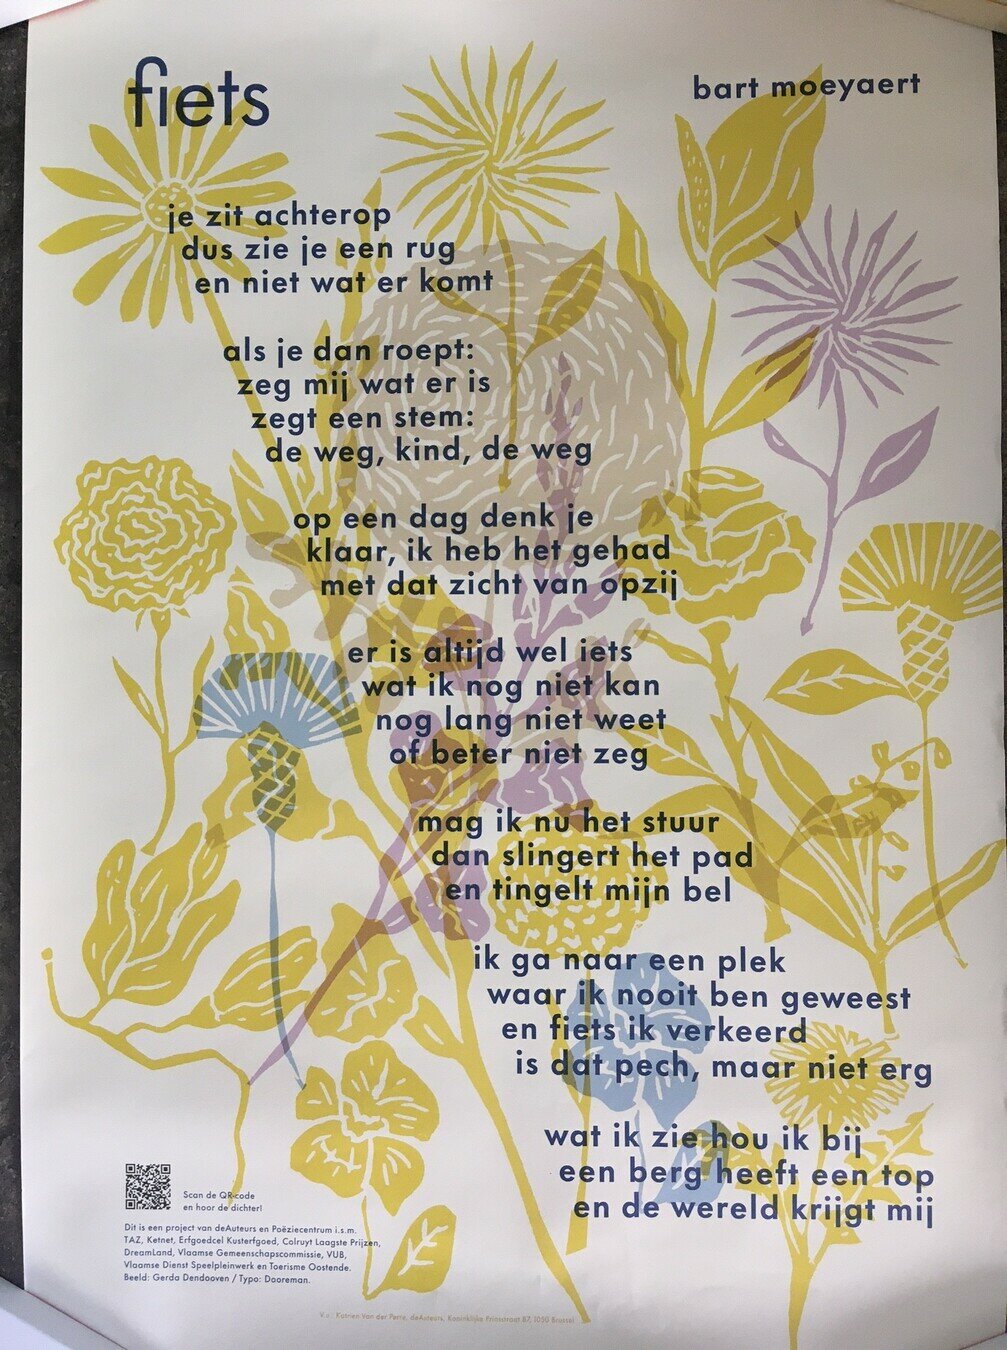 fiets
bart moeyaert
je zit achterop
dus zie je een rug
en niet wat er komt
als je dan roept:
zeg mij wat er is
zegt een stem:
de weg, kind, de weg
op een dag denk je
klaar, ik heb het gehad
met dat zicht van opzij
er is altijd wel iets
wat ik nog niet kan
nog lang niet weet
of beter niet zeg
mag ik nu het stuur
dan slingert het pad
en tingelt mijn bel
ik ga naar een plek
waar ik nooit ben geweest
en fiets ik verkeerd
is dat pech, maar niet erg
wat ik zie hou ik bij
een berg heeft een top
en de wereld krijgt mij
Scan de QR-code
en hoor de dichter!
Dit is een project van deAuteurs en Poëziecentrum i.s.m.
TAZ, Ketnet, Erfgoedcel Kusterfgoed, Colruyt Laagste Prijzen,
DreamLand, Vlaamse Gemeenschapscommissie, VUB,
Vlaamse Dienst Speelpleinwerk en Toerisme Oostende.
Beeld: Gerda Dendooven / Typo: Dooreman.
V.u.: Katrien Van der Perre, deAuteurs, Koninklijke Prinsstraat 87, 1050 Brussel